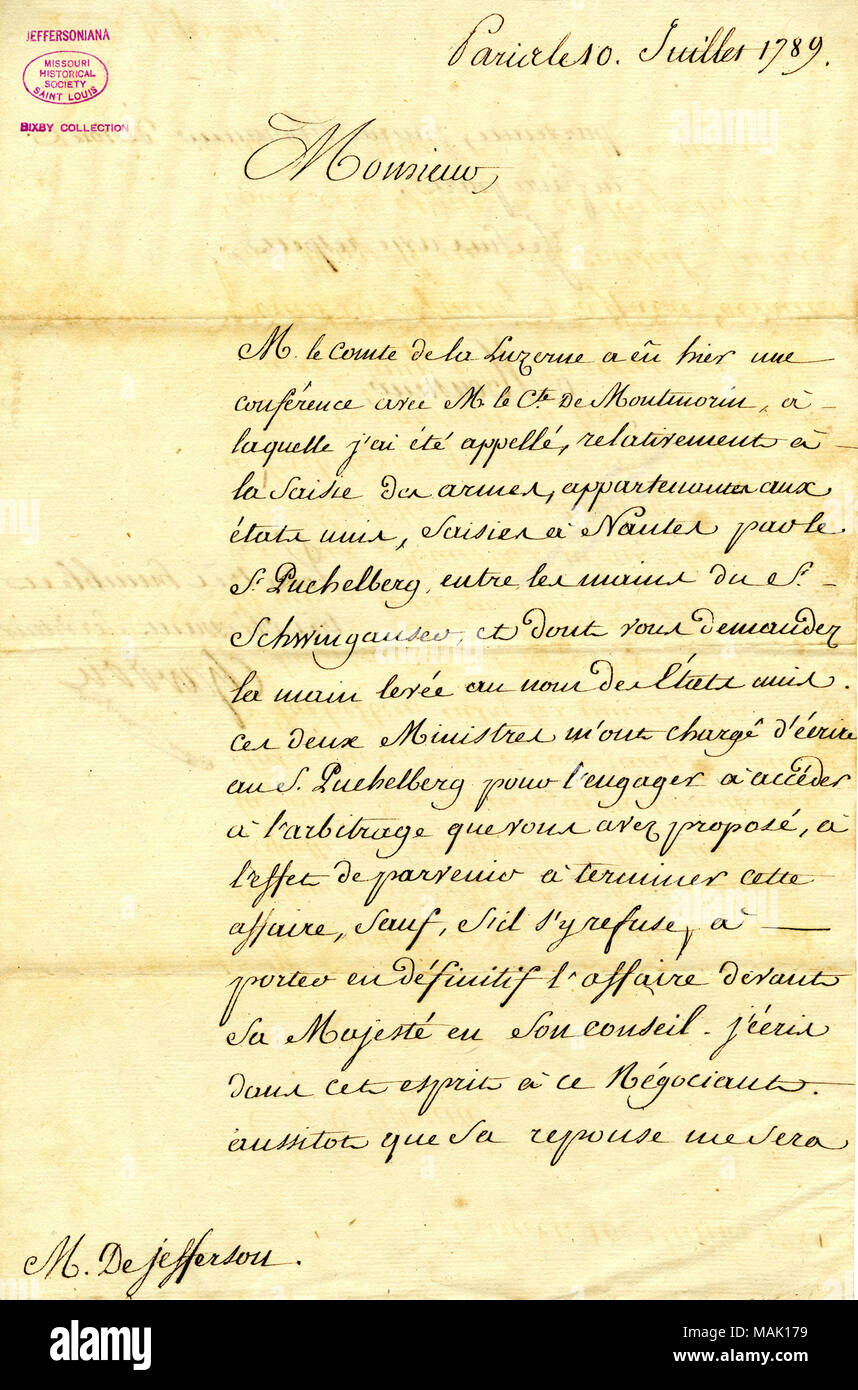 JEFFERSONIANA
MISSOURI
HISTORICAL
SOCIETY
SAINT LOUIS
BIXBY COLLECTION
Paris le 10. Juillet 1789.
Monsieur,
M. le Comte de la Luzerne a eû hier une
conférence avec M. le Cte. De Montmorin, à
laquelle j'ai été appellé, relativement à
la saisie des armes, appartenantes aux
états unis, saisies à Nantes par le
Sr. Puchelberg, entre les mains du Sr.
Schwinganser, et dont vous demandez
la main levée au nom des états unis.
ces deux Ministres m'ont chargé d'écrire
au S. Puchelberg pour l'engager à accéder
à l'arbitrage que vous avez proposé, à
l'effet de parvenir à terminer cette
affaire, sauf, s'il s'y refuse, à
porter en définitif l'affaire devant
Sa Majesté en son conseil. j'écris
dans cet esprit à ce Négociant.
aussitot que sa reponse me sera
M. De jefferson.
alamy
Image ID: MAK179
www.alamy.com